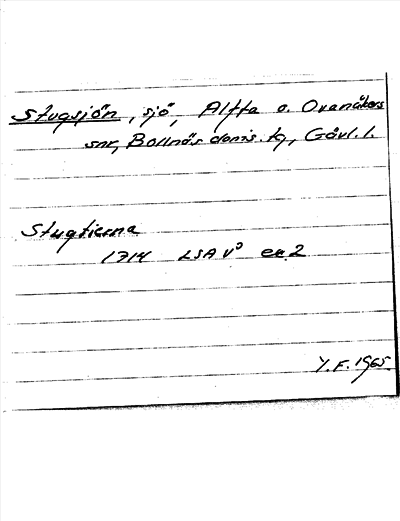 Stugsjön, sjö, Alfta o. Ovanåkers
snr, Bollnäs doms. tg, Gävl. l.
Stugtierna
1714 LSA V³ ex 2
Y.F. 1965.